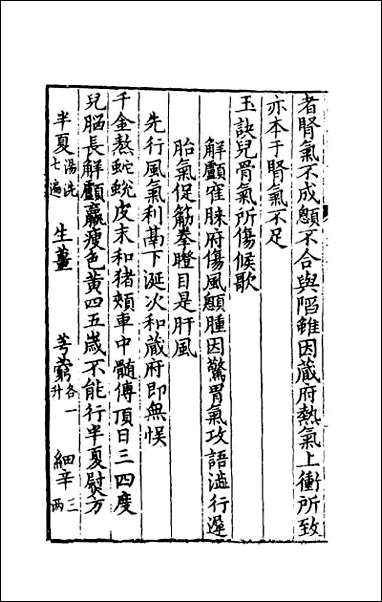 者腎氣不成顖不合與陷雖因藏府熱氣上衝所致
亦本于腎氣不足
玉訣兒骨氣所傷候歌
解顱䆮脉府傷風顖腫因驚胃氣攻語澁行遲
胎氣促筋拳瞪目是肝風
先行風氣利鬲下涎次和藏府即無悞
千金熬蛇蛻皮末和猪頰車中髓傅頂日三四度
兒腦長解顱羸瘦色黄四五歲不能行半夏熨方
半夏湯洗七遍 生薑 芎藭各一升 細辛三兩